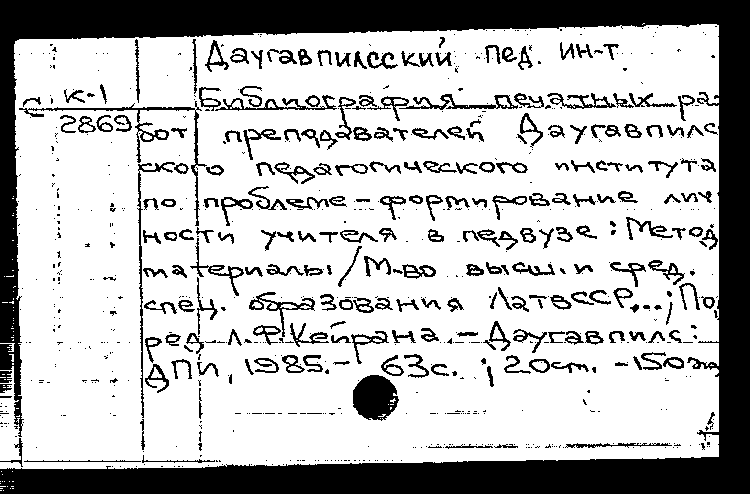 Даугавпилсский пед. ин-т
С к-1 Библиография печатных ра-
2869 бот преподавателей Даугавпилс
ского педагогического института
по проблеме - формирование лич
ности учителя в педвузе : Метод
материалы / М-во высш. и сред.
спец. образования ЛатвССР...; По
ред. Л.Ф.Кейрана. - Даугавпилс :
ДПИ, 1985. - 63с. ; 20см. - 150